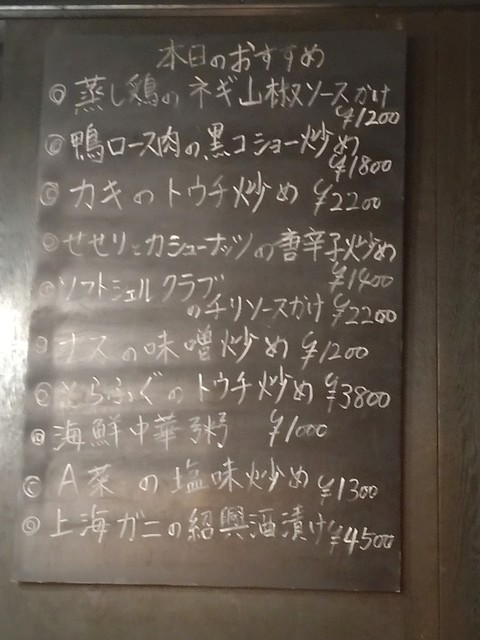 本日のおすすめ
◎蒸し鶏のネギ山椒ソースかけ
¥1200
◎鴨ロース肉の黒コショー炒め
¥1800
◎カキのトウチ炒め ¥2200
◎せせりとカシューナッツの唐辛子炒め
¥1400
◎ソフトシェルクラブ
のチリソースかけ ¥2200
◎ナスの味噌炒め ¥1200
◎とらふぐのトウチ炒め ¥3800
◎海鮮中華粥 ¥1000
◎A菜の塩味炒め ¥1300
◎上海ガニの紹興酒漬け ¥4500